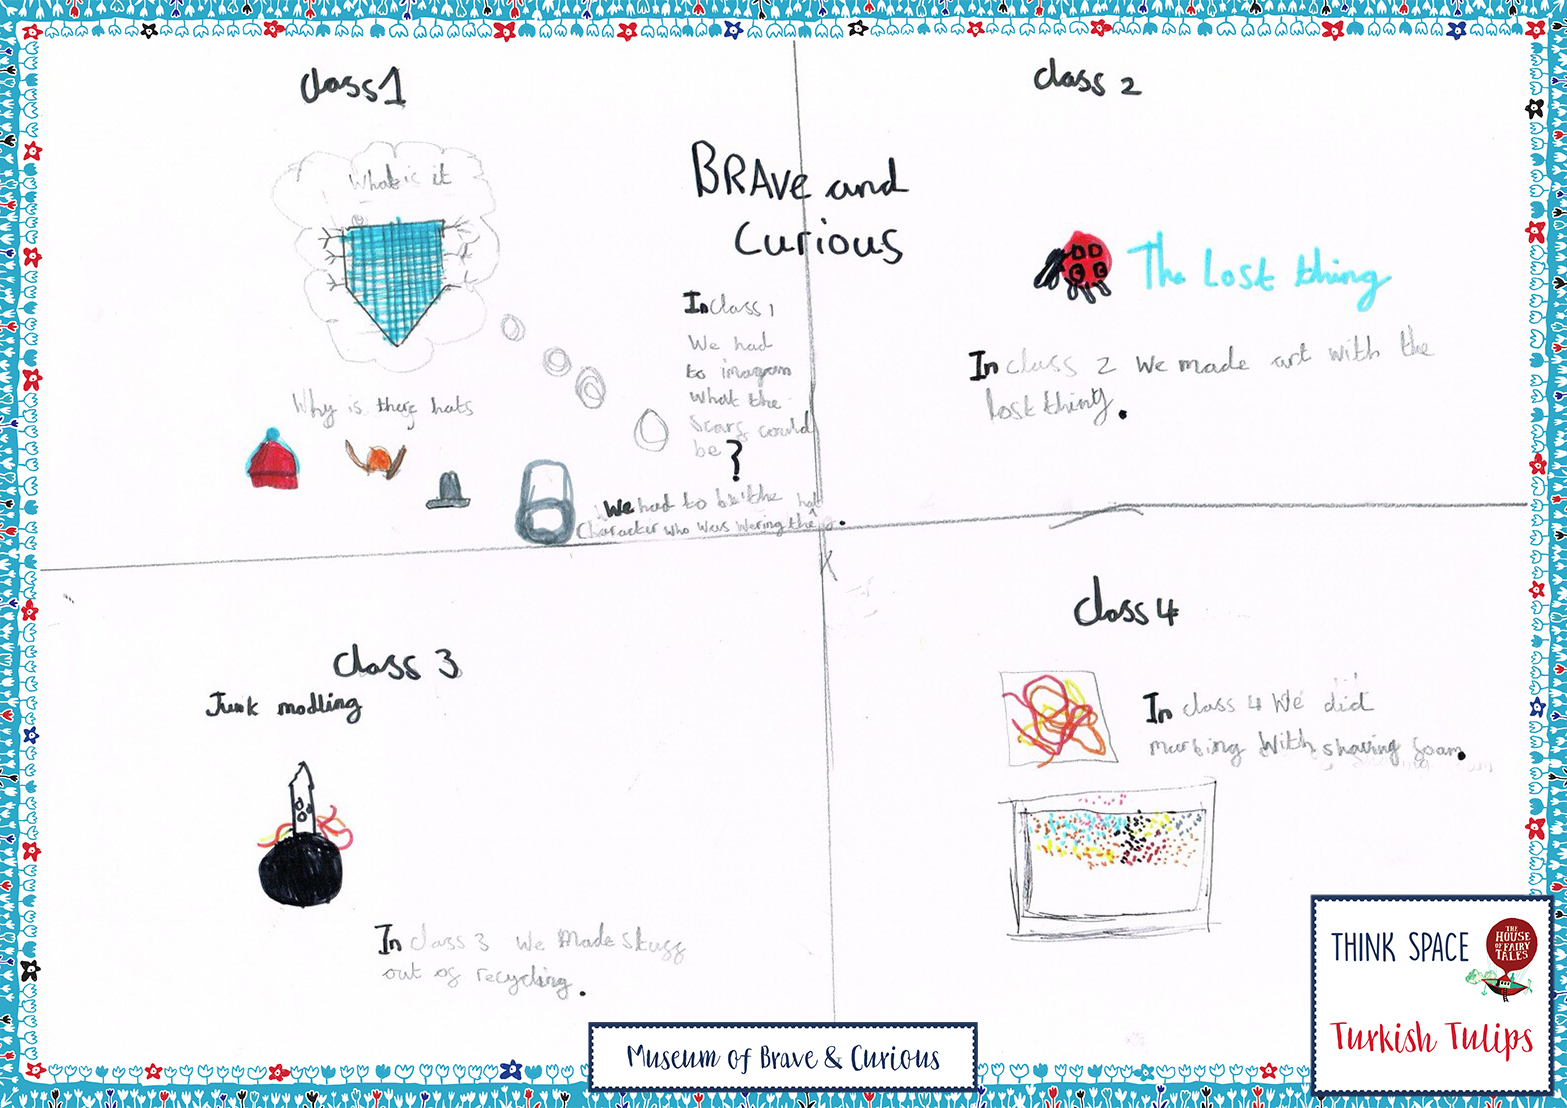 Class 1
What is it
Why is there hats
BRAVe and
Curious
In class 1
We had
to imagam
what the
Scarf could
be?
We had to be the hat
Character who was wering the.
Class 2
The Lost thing
In class 2 we made art with the
lost thing.
Class 3
Junk modling
In class 3 we made stuff
out of recycling.
Class 4
In class 4 We did
marbing With shaving foam.
Museum of Brave & Curious
THINK SPACE
THE
HOUSE
OF FAIRY
TALES
Turkish Tulips